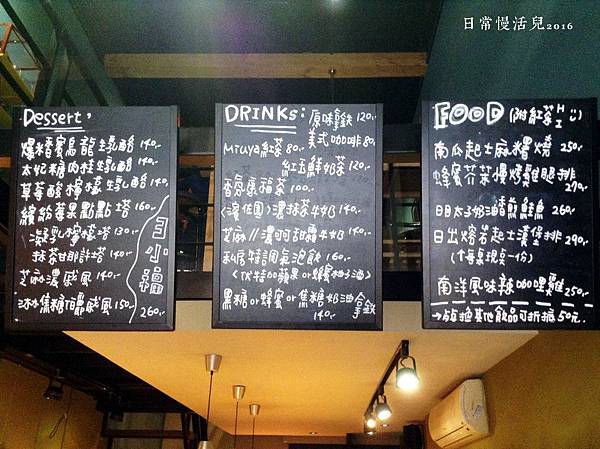 日常慢活兒2016
Dessert,
爆糖蜜烏龍生乳酪 140.-
太妃糖肉桂生乳酪 140.-
草莓酸檸檬生乳酪 140.-
繽紛莓果點點塔 160.-
凝乳檸檬塔 130.-
抹茶甘納許塔 140.-
芝麻濃戚風 140.-
冰冰焦糖頂戚風 150.-
260.-
DRINKS:
原味拿鐵 120.-
美式咖啡 80.-
Miuya紅茶 80.-
紅玉鮮奶茶 120.-
香氛康福茶 100.-
<濱佐園>濃抹茶牛奶 140.-
芝麻//濃呵甜霜牛奶 140.-
私房特調氣泡飲 160.-
<伏特加蘋果or蜂蜜柚子酒>
黑糖or蜂蜜or焦糖奶油拿鐵
140.-
FOOD (附紅茶 HI :)
南瓜起士麻糬燒 250.-
蜂蜜芥茉慢烤雞腿排
290.-
鮭魚 260.-
日出熔岩起士漢堡排 290.-
(个每桌限一份)
南洋風味辣咖哩雞 250.-
→點換其他飲品可折抵50元.